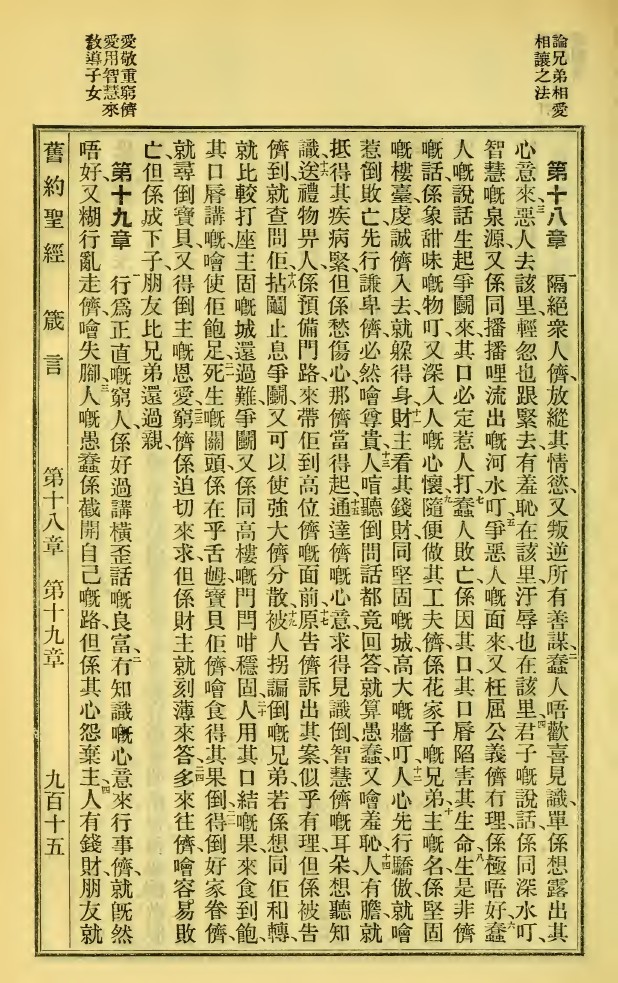 論兄弟相愛
相讓之法
愛敬重窮儕
愛用智慧來
敎導子女
第十八章 一隔絕衆人儕放縱其情慾又叛逆所有善謀、二蠢人唔歡喜見識、單係想露出其
心意來、三惡人去該里輕忽也跟緊去有羞恥在該里汙辱也在該里、四君子嘅說話係同深水叮、
智慧嘅泉源又係同播播哩流出嘅河水叮、五爭惡人嘅面來、又枉屈公義儕冇理係極唔好、六蠢
人嘅說話生起爭鬭來、其口必定惹人打、七蠢人敗亡係因其口其口唇陷害其生命、八生是非儕
嘅話係象甜味嘅物叮又深入人嘅心懷、九隨便做其工夫儕係花家子嘅兄弟、十主嘅名係堅固
嘅樓臺、虔誠儕入去、就躲得身、十一財主看其錢財同堅固嘅城、高大嘅牆叮、十二人心先行驕傲、就噲
惹倒敗亡、先行謙卑儕必然噲尊貴、十三人喧聽倒問話都竟回答、就算愚蠢、又噲羞恥、十四人有膽就
抵得其疾病緊、但係愁傷心、那儕當得起、十五通達儕嘅心意求得見識倒、智慧儕嘅耳朵想聽知
識、十六送禮物畀人、係預備門路來帶佢到高位儕嘅面前、十七原告儕訴出其案、似乎有理、但係被告
儕到、就查問佢、十八拈鬮止息爭鬭、又可以使強大儕分散、十九被人拐諞倒嘅兄弟、若係想同佢和轉、
就比較打座主固嘅城還過難、爭鬭又係同高樓嘅門閂咁穩固、二十人用其口結嘅果來食到飽、
其口唇講嘅噲使佢飽足、二一死生嘅關頭係在乎舌𫲗、寶貝佢儕噲食得其果倒、二二得倒好家眷儕、
就尋倒寶貝、又得倒主嘅恩愛、二三窮儕係迫切來求、但係財主就刻薄來答、二四多來往儕噲容易敗
亡、但係成下子朋友比兄弟還過親、
第十九章 一行爲正直嘅窮人、係好過講橫歪話嘅良富、二冇知識嘅心意來行事儕、就旣然
唔好、又糊行亂走儕、噲失脚、三人嘅愚蠢係截開自己嘅路、但係其心怨棄主、四人有錢財、朋友就
舊約聖經 箴言 第十八章 第十九章 九百十五